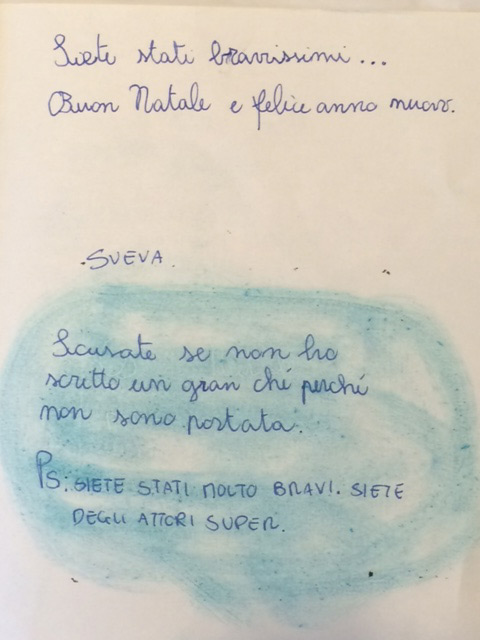 Siete stati bravissimi...
Buon Natale e felice anno nuovo.
SVEVA.
Scusate se non ho
scritto un gran ché perché
non sono portata.
PS: SIETE STATI MOLTO BRAVI. SIETE
DEGLI ATTORI SUPER.